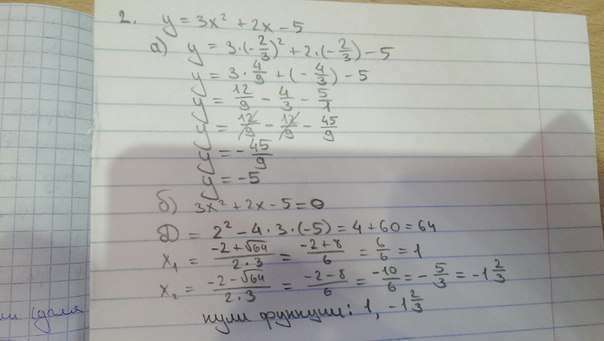 2. y = 3x² + 2x - 5
а) y = 3·(-2/3)² + 2·(-2/3) - 5
y = 3·4/9 + (-4/3) - 5
y = 12/9 - 4/3 - 5/1
y = 12/9 - 12/9 - 45/9
y = -45/9
y = -5
б) 3x² + 2x - 5 = 0
D = 2² - 4·3·(-5) = 4 + 60 = 64
x₁ = (-2+√64)/(2·3) = (-2+8)/6 = 6/6 = 1
x₂ = (-2-√64)/(2·3) = (-2-8)/6 = -10/6 = -5/3 = -1 2/3
нули функции: 1, -1 2/3